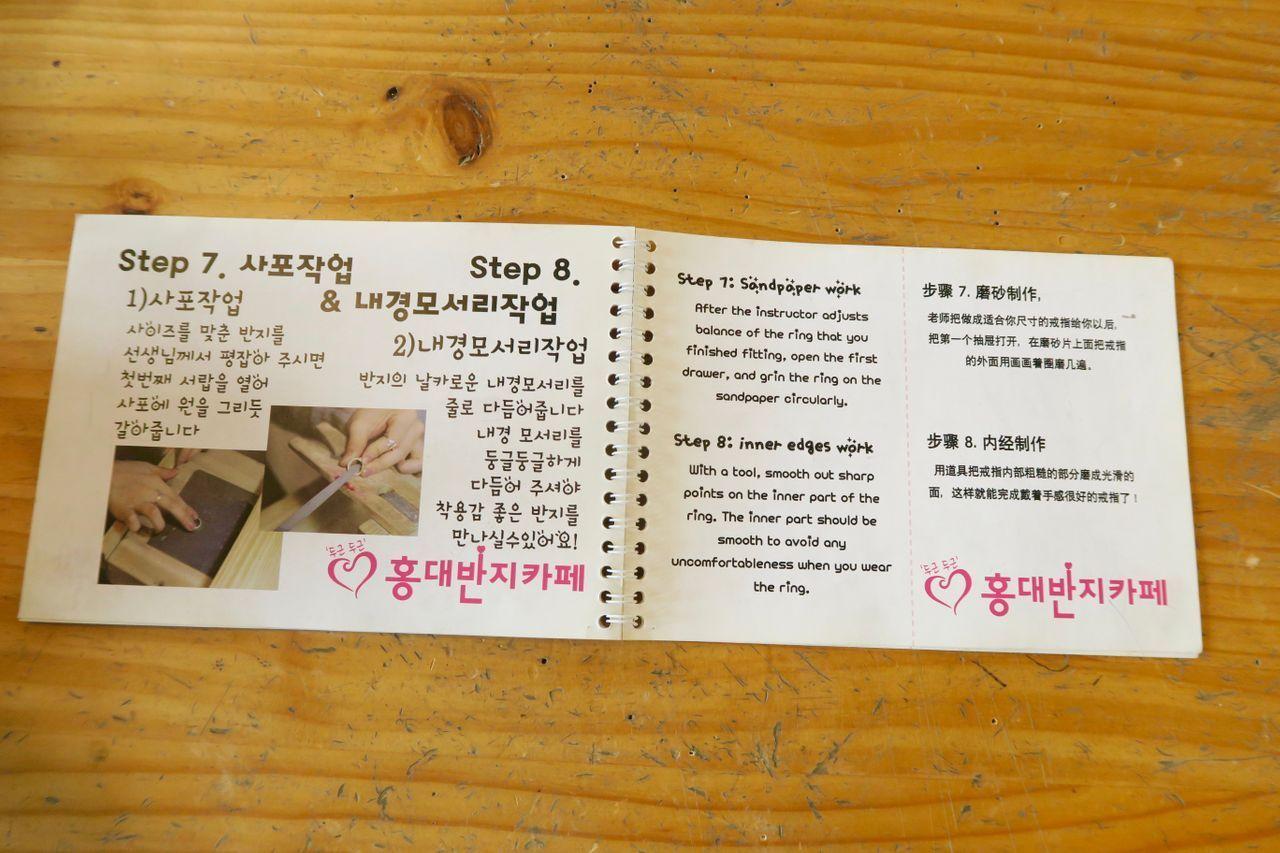 Step 7. 사포작업
1)사포작업
사이즈를 맞춘 반지를
선생님께서 평잡아 주시면
첫번째 서랍을 열어
사포에 원을 그리듯
갈아줍니다
Step 8.
& 내경모서리작업
2)내경모서리작업
반지의 날카로운 내경모서리를
줄로 다듬어줍니다
내경 모서리를
둥글둥글하게
다듬어 주셔야
착용감 좋은 반지를
만나실수있어요!
'두근 두근'
홍대반지카페
Step 7: Sandpaper work
After the instructor adjusts
balance of the ring that you
finished fitting, open the first
drawer, and grin the ring on the
sandpaper circularly.
Step 8: inner edges work
With a tool, smooth out sharp
points on the inner part of the
ring. The inner part should be
smooth to avoid any
uncomfortableness when you wear
the ring.
步骤 7. 磨砂制作,
老师把做成适合你尺寸的戒指给你以后,
把第一个抽屉打开, 在磨砂片上面把戒指
的外面用画画着圈磨几遍。
步骤 8. 内经制作
用道具把戒指内部粗糙的部分磨成光滑的
面, 这样就能完成戴着手感很好的戒指了!
'두근 두근'
홍대반지카페